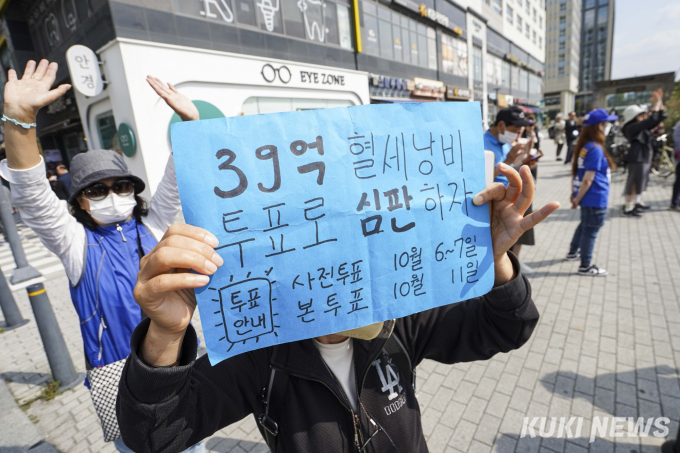 안경
EYE ZONE
39억 혈세낭비
투표로 심판하자
투표
안내
사전투표 10월 6~7일
본투표 10월 11일
LA
KUKI NEWS